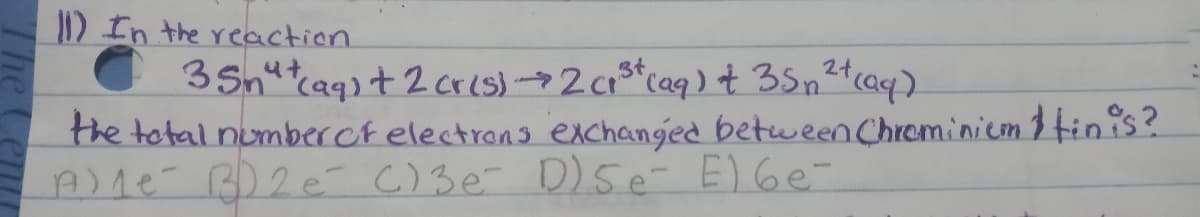 11) In the reaction
3 Sn⁴⁺(aq) + 2 cr(s) → 2 cr³⁺(aq) + 3Sn²⁺(aq)
the total number of electrons exchanged between Chrominium & tin is?
A) 1e⁻ B) 2e⁻ C) 3e⁻ D) 5e⁻ E) 6e⁻
The